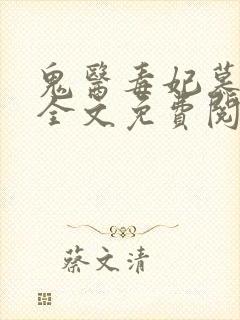 鬼醫毒妃墓
全文免費閱
蔡文清